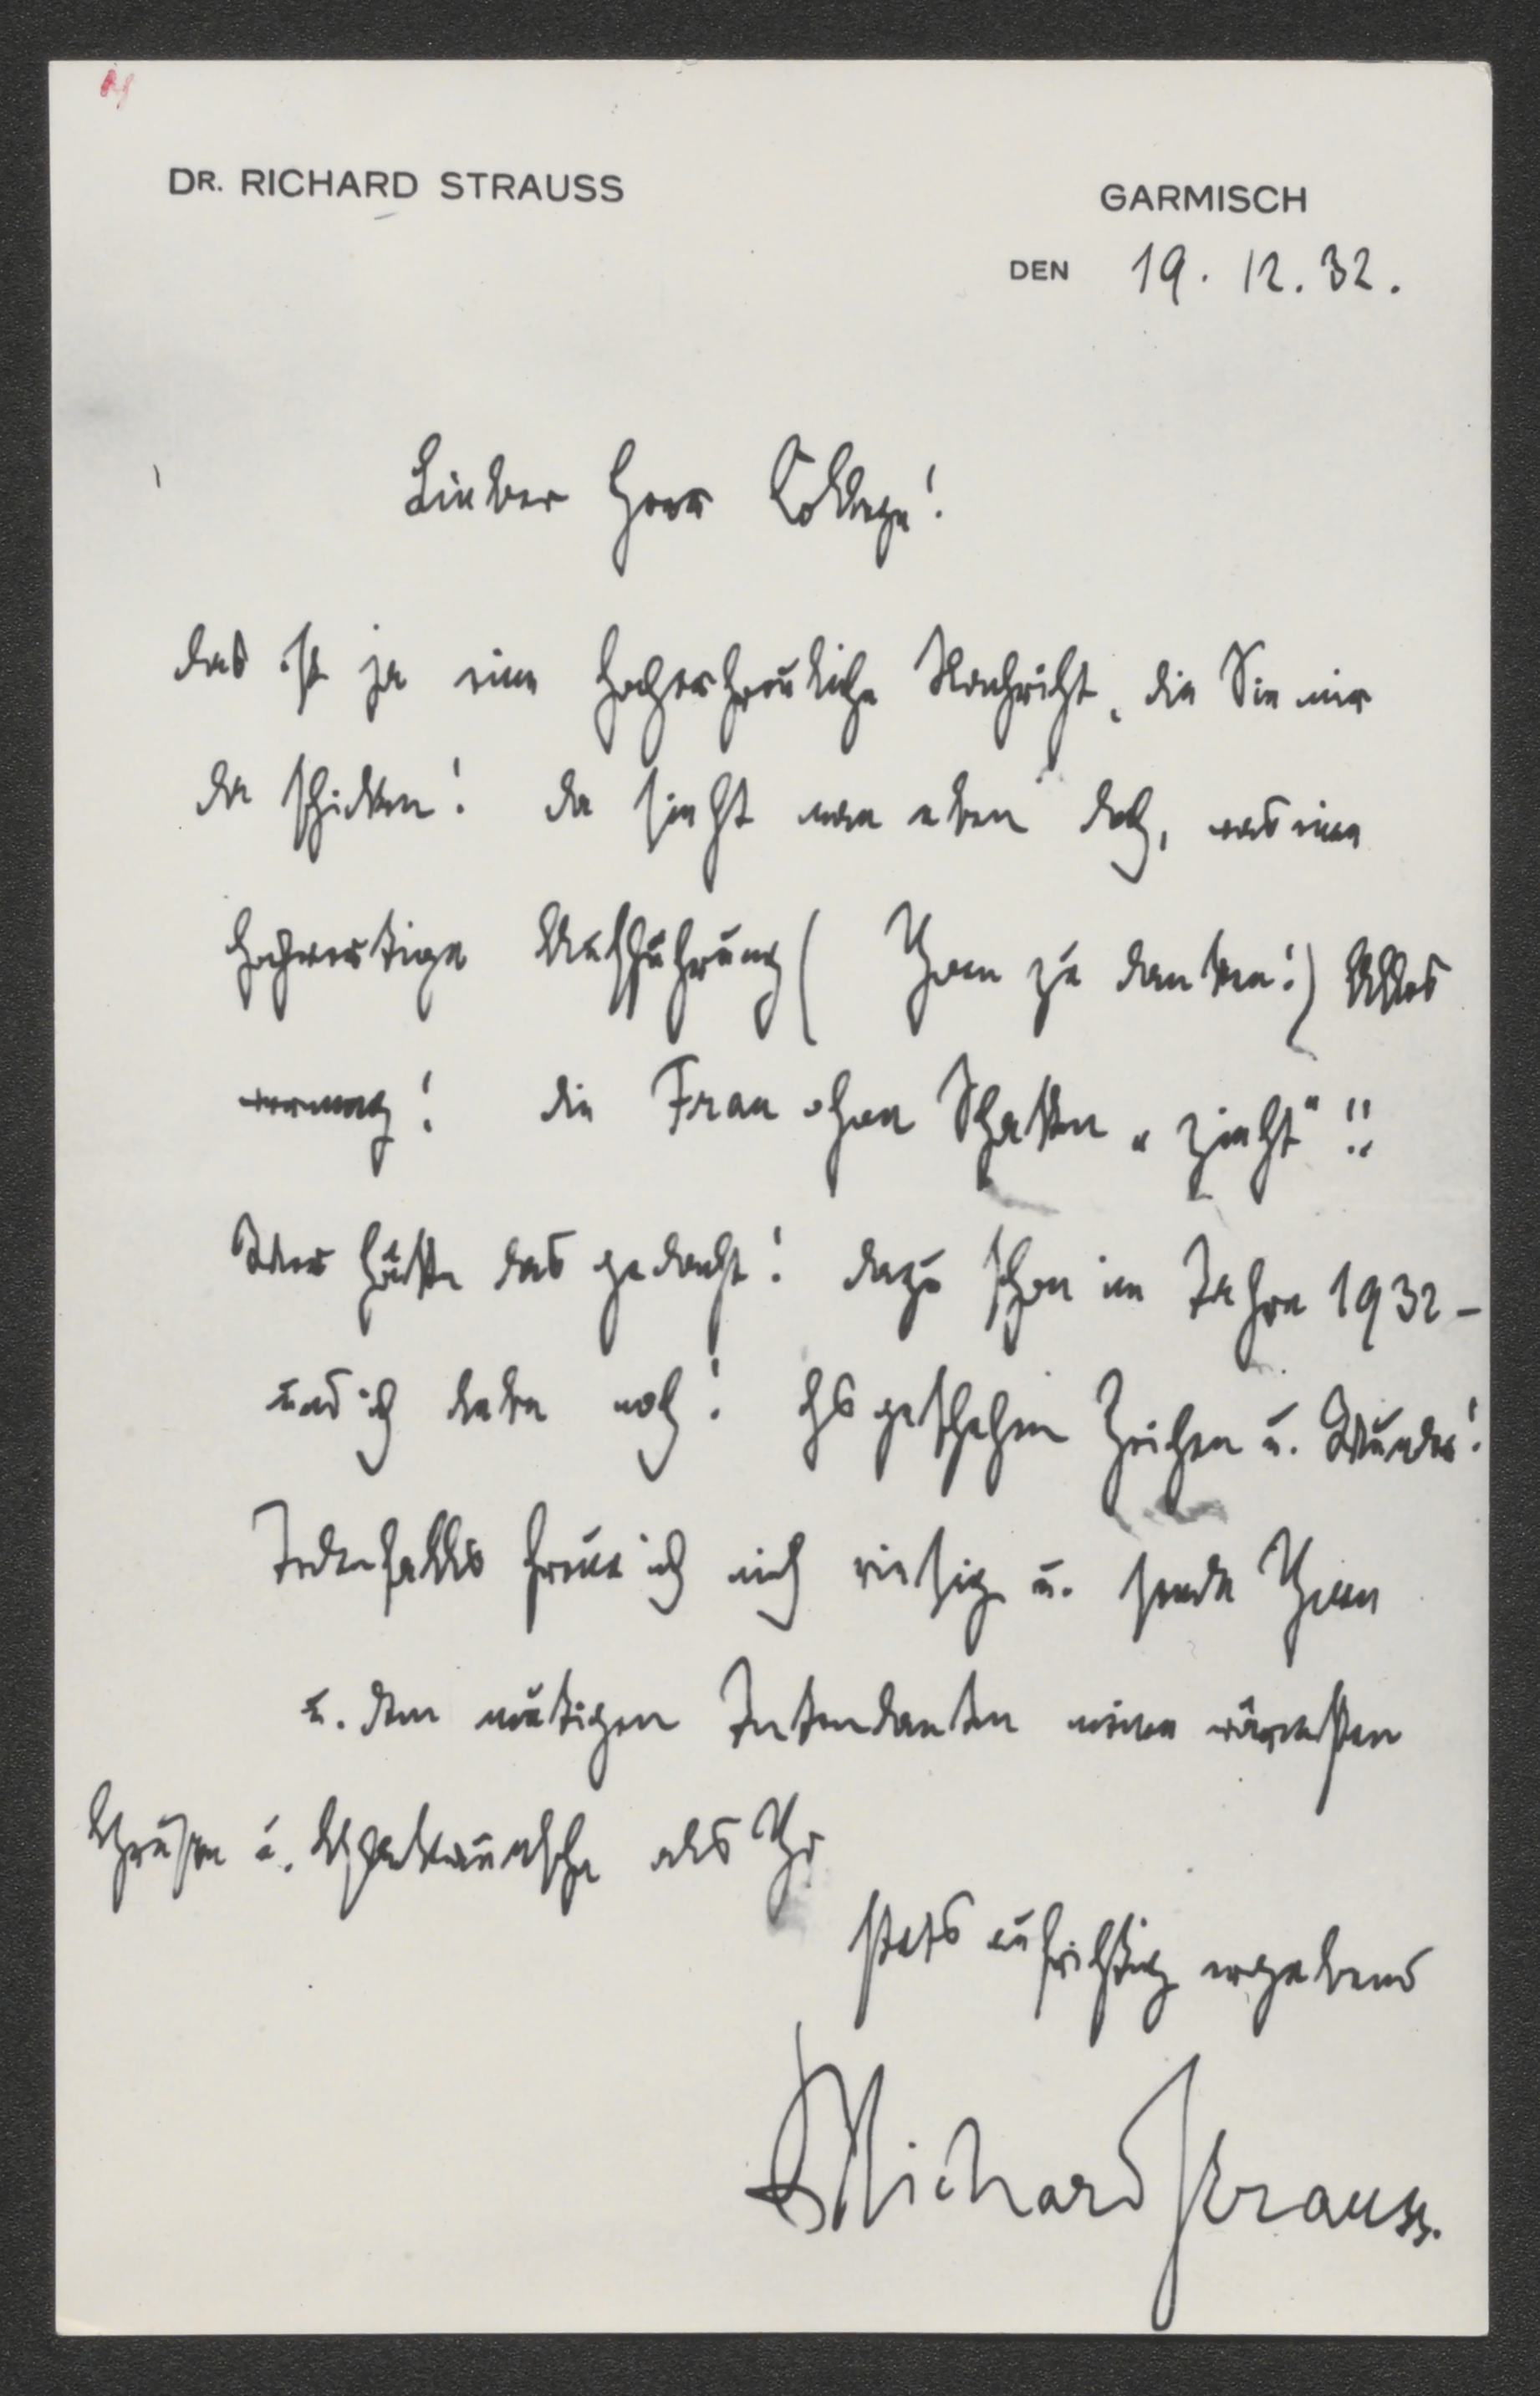 DR. RICHARD STRAUSS
GARMISCH
DEN 19. 12. 32.
Lieber Herr College!
das ist ja eine hocherfreuliche Nachricht, die Sie mir
da schicken! da sieht man eben doch, was eine
hochwertige Aufführung (Ihnen zu danken!) Alles
vermag! die Frau ohne Schatten „zieht“!!
Wer hätte das gedacht! dazu schon im Jahre 1932 –
und ich lebe noch! Es geschehen Zeichen u. Wunder!
Jedenfalls freue ich mich riesig u. sende Ihnen
u. dem mutigen Intendanten meine wärmsten
Grüße u. Glückwünsche als Ihr
stets aufrichtig ergebener
Richard Strauss.